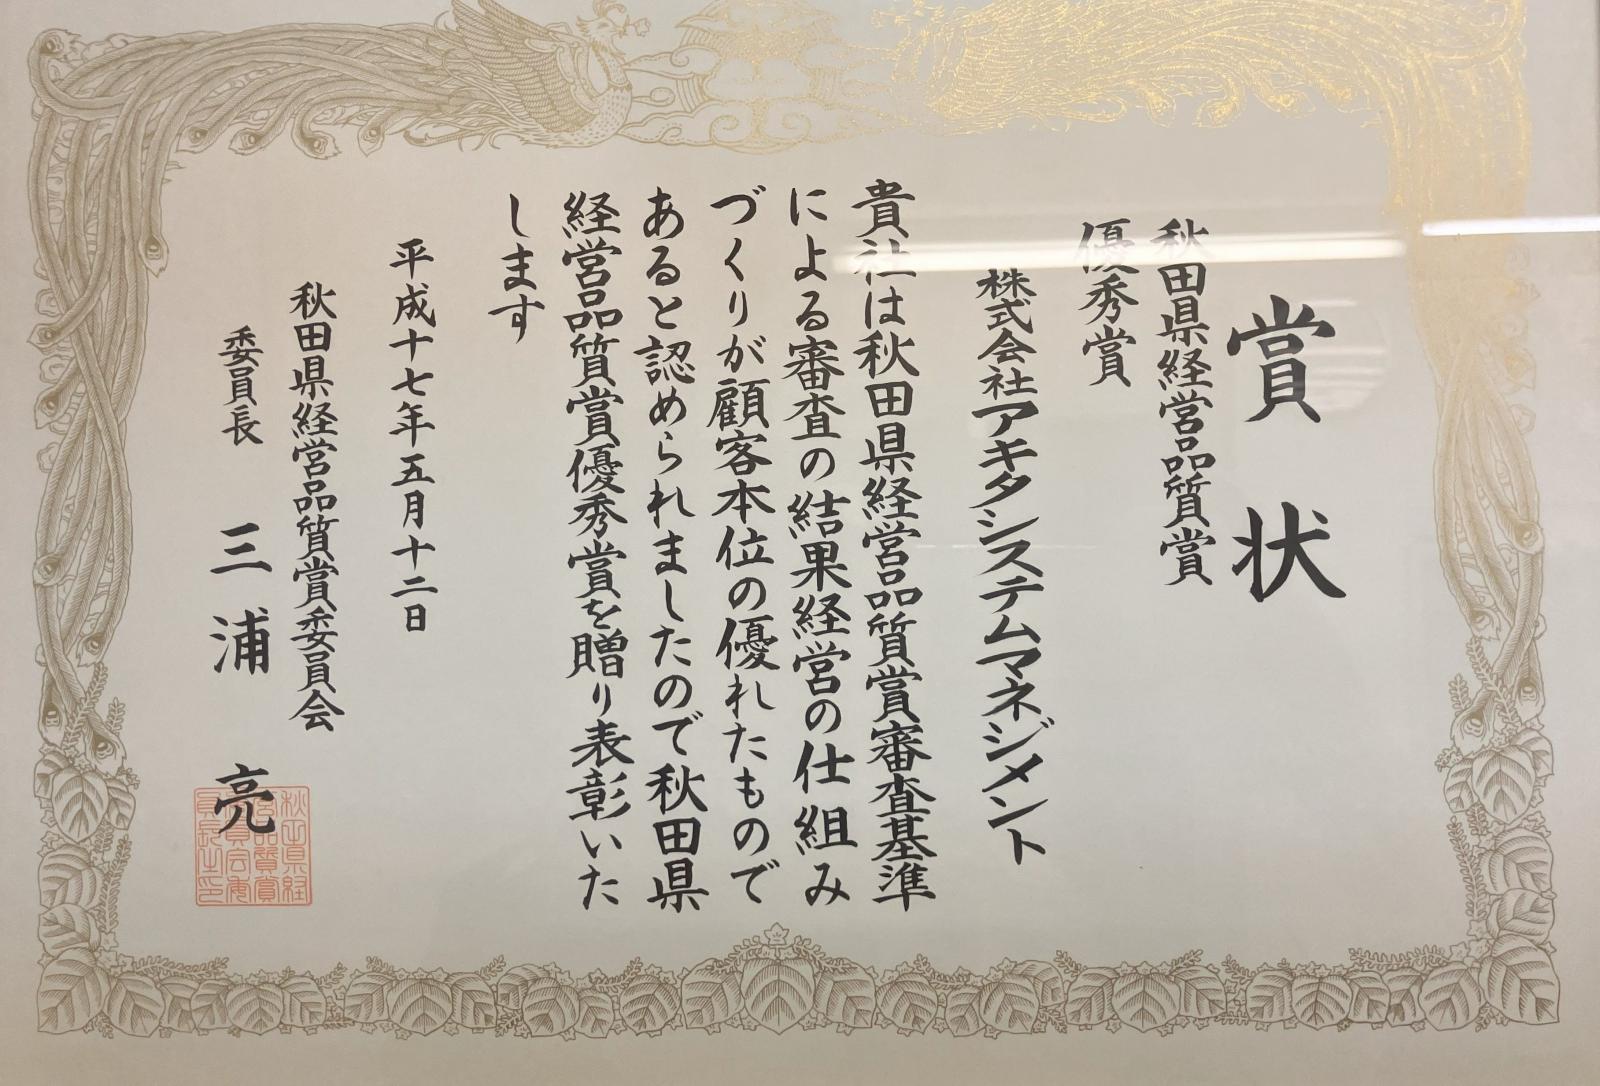 賞状
秋田県経営品質賞
優秀賞
株式会社アキタシステムマネジメント
貴社は秋田県経営品質賞審査基準
による審査の結果経営の仕組み
づくりが顧客本位の優れたもので
あると認められましたので秋田県
経営品質賞優秀賞を贈り表彰いた
します
平成十七年五月十二日
秋田県経営品質賞委員会
委員長 三浦 亮
秋田県経
営品質賞
委員会委
員長之印